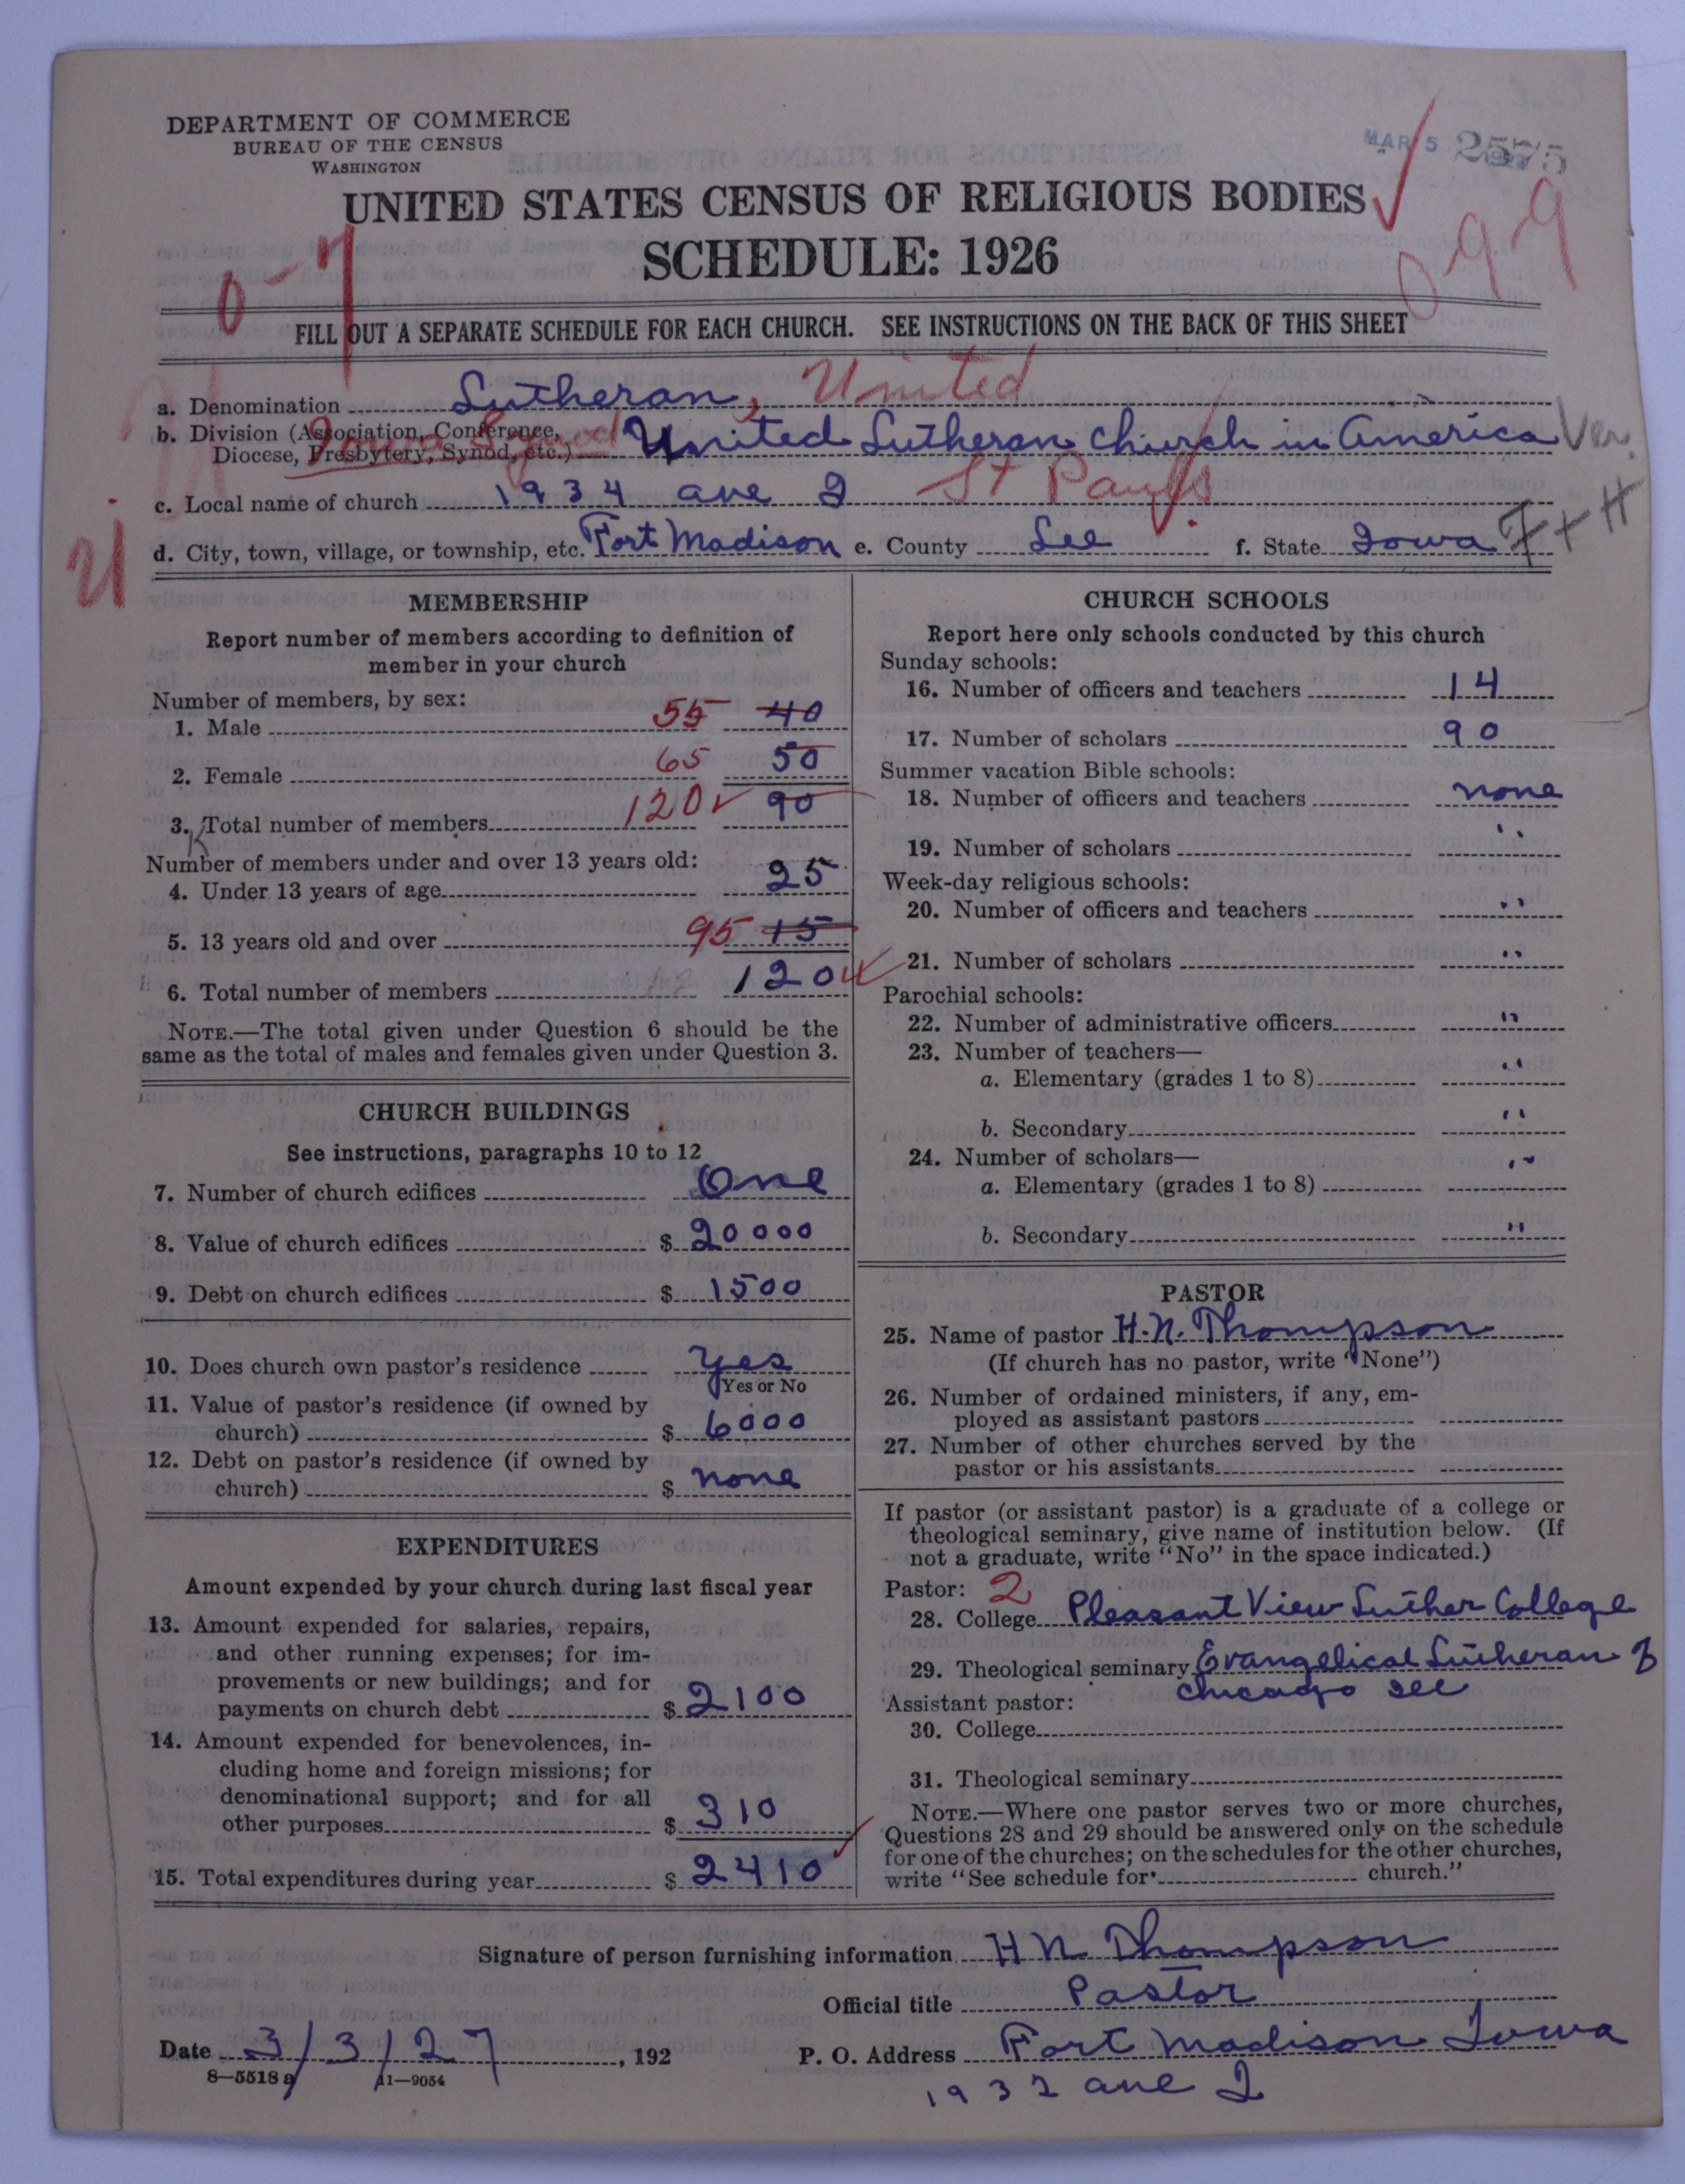 DEPARTMENT OF COMMERCE
BUREAU OF THE CENSUS
WASHINGTON
MAR 5 2575
UNITED STATES CENSUS OF RELIGIOUS BODIES
SCHEDULE: 1926
0-7
099
FILL OUT A SEPARATE SCHEDULE FOR EACH CHURCH. SEE INSTRUCTIONS ON THE BACK OF THIS SHEET
a. Denomination Lutheran, United
b. Division (Association, Conference, Diocese, Presbytery, Synod, etc.) Iowa Synod United Lutheran Church in America Ver.
c. Local name of church 1934 ave I St Paul's
d. City, town, village, or township, etc. Fort Madison e. County Lee f. State Iowa F+H
MEMBERSHIP
Report number of members according to definition of
member in your church
Number of members, by sex:
1. Male 55 40
2. Female 65 50
3. Total number of members 120 90
Number of members under and over 13 years old:
4. Under 13 years of age 25
5. 13 years old and over 95 15
6. Total number of members 120
NOTE.—The total given under Question 6 should be the
same as the total of males and females given under Question 3.
CHURCH BUILDINGS
See instructions, paragraphs 10 to 12
7. Number of church edifices One
8. Value of church edifices $ 20000
9. Debt on church edifices $ 1500
10. Does church own pastor's residence yes
Yes or No
11. Value of pastor's residence (if owned by
church) $ 6000
12. Debt on pastor's residence (if owned by
church) $ none
EXPENDITURES
Amount expended by your church during last fiscal year
13. Amount expended for salaries, repairs,
and other running expenses; for im-
provements or new buildings; and for
payments on church debt $ 2100
14. Amount expended for benevolences, in-
cluding home and foreign missions; for
denominational support; and for all
other purposes $ 310
15. Total expenditures during year $ 2410
CHURCH SCHOOLS
Report here only schools conducted by this church
Sunday schools:
16. Number of officers and teachers 14
17. Number of scholars 90
Summer vacation Bible schools:
18. Number of officers and teachers none
19. Number of scholars "
Week-day religious schools:
20. Number of officers and teachers "
21. Number of scholars "
Parochial schools:
22. Number of administrative officers "
23. Number of teachers—
a. Elementary (grades 1 to 8) "
b. Secondary "
24. Number of scholars—
a. Elementary (grades 1 to 8) "
b. Secondary "
PASTOR
25. Name of pastor H.N. Thompson
(If church has no pastor, write "None")
26. Number of ordained ministers, if any, em-
ployed as assistant pastors
27. Number of other churches served by the
pastor or his assistants
If pastor (or assistant pastor) is a graduate of a college or
theological seminary, give name of institution below. (If
not a graduate, write "No" in the space indicated.)
Pastor: 2
28. College Pleasant View Luther College
29. Theological seminary Evangelical Lutheran of
Chicago Ill
Assistant pastor:
30. College
31. Theological seminary
NOTE.—Where one pastor serves two or more churches,
Questions 28 and 29 should be answered only on the schedule
for one of the churches; on the schedules for the other churches,
write "See schedule for church."
Signature of person furnishing information H N Thompson
Official title Pastor
Date 3/3/27, 192
P. O. Address Fort Madison Iowa
1932 ave I
8—5518 a 11—9054